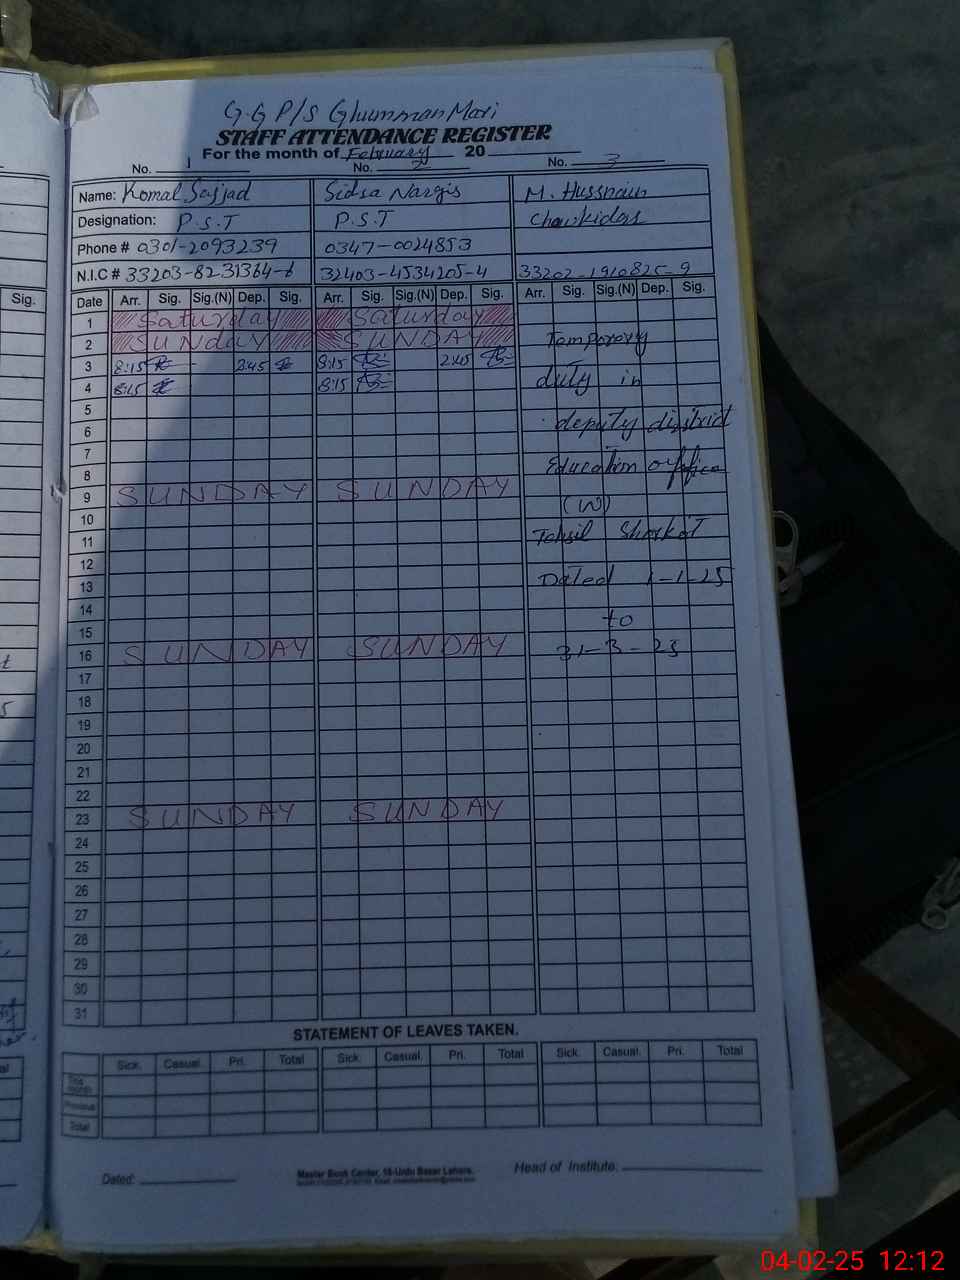 G.G P/S Ghumman Mari
STAFF ATTENDANCE REGISTER
For the month of February 20
No. 1 No. 2 No. 3
Name: Komal Sajjad Sidra Nargis M. Hussnain
Designation: P.S.T P.S.T Chawkidar
Phone # 0301-2093239 0347-0024853
N.I.C # 33203-8231364-6 32403-4534205-4 33202-1910825-9
Date Arr. Sig. Sig.(N) Dep. Sig. Arr. Sig. Sig.(N) Dep. Sig. Arr. Sig. Sig.(N) Dep. Sig.
Sig.
1 Saturday Saturday
2 SUNDAY SUNDAY Temporery
3 8:15 2:45 8:15 2:45
4 8:15 8:15 duty in
5
6 deputy district
7
8 Education office
9 SUNDAY SUNDAY (W)
10
11 Tehsil Shorkot
12
13 Dated 1-1-25
14
15 to
16 SUNDAY SUNDAY 31-3-25
17
18
19
20
21
22
23 SUNDAY SUNDAY
24
25
26
27
28
29
30
31
STATEMENT OF LEAVES TAKEN.
Sick. Casual. Pri. Total Sick. Casual. Pri. Total Sick. Casual. Pri. Total
This month
Previous
Total
Dated: Master Book Center, 18-Urdu Bazar Lahore. Head of Institute:
04-02-25 12:12